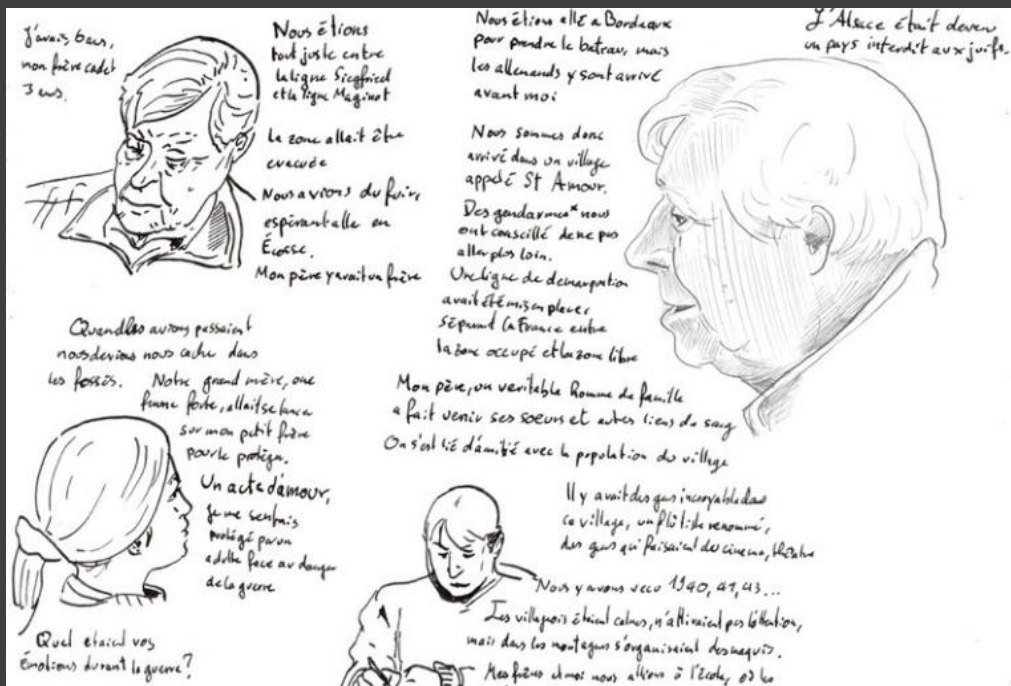 J'avais 6 ans,
mon frère cadet
3 ans.
Nous étions
tout juste entre
la ligne Siegfried
et la ligne Maginot
La zone allait être
evacuée
Nous avions du fuir,
espérant alle en
Écosse.
Mon père y avait un frère
Quand les avions passaient
nous devions nous cache dans
les fossés. Notre grand mère, une
femme forte, allait se lancer
sur mon petit frère
pour le protéger.
Un acte d'amour,
je me sentais
protégé par un
adulte face au danger
de la guerre
Quel etaient vos
émotions durant la guerre?
Nous étions allé a Bordeaux
pour prendre le bateau, mais
les allemands y sont arrivé
avant moi
Nous sommes donc
arrivé dans un village
appelé St Amour.
Des gendarmes* nous
ont conseillé de ne pas
aller plus loin.
Une ligne de demarcation
avait été mis en place,
séparant la France entre
la zone occupé et la zone libre
Mon père, un veritable homme de famille
a fait venir ses soeurs et autres liens du sang
On s'est lié d'amitié avec la population du village
Il y avait des gens incroyable dans
ce village, un flûtiste renommé,
des gens qui faisaient du cinema, théatre
Nous y avons vecu 1940, 41, 43...
Les villageois étaient calmes, n'attiraient pas l'attention,
mais dans les montagnes s'organisaient des maquis.
Mes frères et moi nous allions à l'école, où les
L'Alsace était devenu
un pays interdit aux juifs.